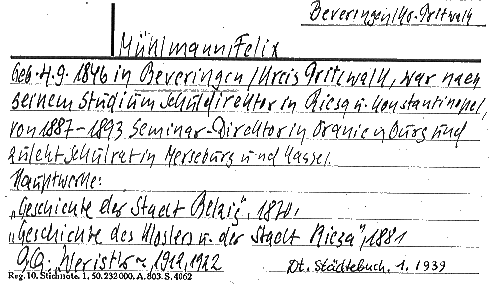 Beveringen/Kr. Pritzwalk
Mühlmann, Felix
Geb. 4.9. 1846 in Beveringen / Kreis Pritzwalk, war nach
seinem Studium Schuldirektor in Riesa u. Konstantinopel,
von 1887-1893 Seminar-Direktor in Oranienburg und
zuletzt Schulrat in Merseburg und Kassel.
Hauptwerke:
„Geschichte der Stadt Belzig", 1870,
„Geschichte des Klosters u. der Stadt Riesa", 1881
Qq. Wer ist's 1912, 1922 Dt. Städtebuch. 1. 1939
Reg. 10. Stichnote. 1, 50. 232 000. A. 803. S. 4062